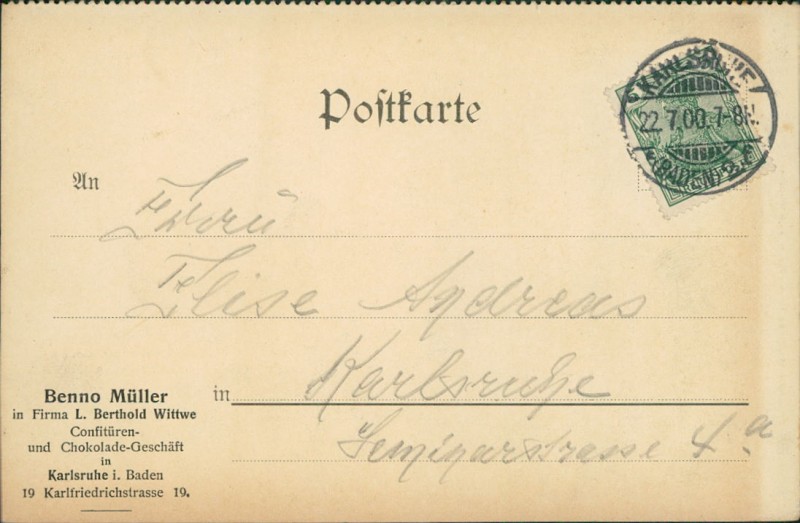 Postkarte
KARLSRUHE
22.7.00.7-8N.
(BADEN)
An
Frau
Elise Andreas
in Karlsruhe
Seminarstrasse 4 a
Benno Müller
in Firma L. Berthold Wittwe
Confitüren-
und Chokolade-Geschäft
in
Karlsruhe i. Baden
19 Karlfriedrichstrasse 19.